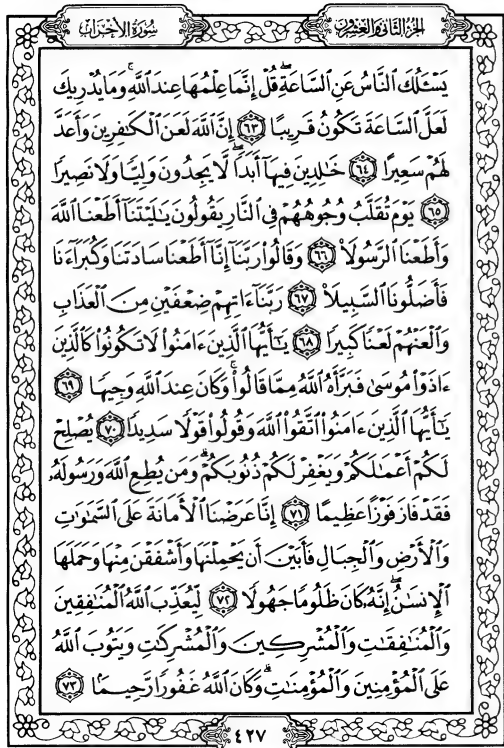 سُورَةُ الأَحْزَابِ الجُزْءُ الثَّانِي وَالعِشْرُونَ
يَسْـَٔلُكَ ٱلنَّاسُ عَنِ ٱلسَّاعَةِۖ قُلْ إِنَّمَا عِلْمُهَا عِندَ ٱللَّهِۚ وَمَا يُدْرِيكَ
لَعَلَّ ٱلسَّاعَةَ تَكُونُ قَرِيبًا ٦٣ إِنَّ ٱللَّهَ لَعَنَ ٱلْكَٰفِرِينَ وَأَعَدَّ
لَهُمْ سَعِيرًا ٦٤ خَٰلِدِينَ فِيهَآ أَبَدًاۖ لَّا يَجِدُونَ وَلِيًّا وَلَا نَصِيرًا
٦٥ يَوْمَ تُقَلَّبُ وُجُوهُهُمْ فِى ٱلنَّارِ يَقُولُونَ يَٰلَيْتَنَآ أَطَعْنَا ٱللَّهَ
وَأَطَعْنَا ٱلرَّسُولَا۠ ٦٦ وَقَالُوا۟ رَبَّنَآ إِنَّآ أَطَعْنَا سَادَتَنَا وَكُبَرَآءَنَا
فَأَضَلُّونَا ٱلسَّبِيلَا۠ ٦٧ رَبَّنَآ ءَاتِهِمْ ضِعْفَيْنِ مِنَ ٱلْعَذَابِ
وَٱلْعَنْهُمْ لَعْنًا كَبِيرًا ٦٨ يَٰٓأَيُّهَا ٱلَّذِينَ ءَامَنُوا۟ لَا تَكُونُوا۟ كَٱلَّذِينَ
ءَاذَوْا۟ مُوسَىٰ فَبَرَّأَهُ ٱللَّهُ مِمَّا قَالُوا۟ۚ وَكَانَ عِندَ ٱللَّهِ وَجِيهًا ٦٩
يَٰٓأَيُّهَا ٱلَّذِينَ ءَامَنُوا۟ ٱتَّقُوا۟ ٱللَّهَ وَقُولُوا۟ قَوْلًا سَدِيدًا ٧٠ يُصْلِحْ
لَكُمْ أَعْمَٰلَكُمْ وَيَغْفِرْ لَكُمْ ذُنُوبَكُمْۗ وَمَن يُطِعِ ٱللَّهَ وَرَسُولَهُۥ
فَقَدْ فَازَ فَوْزًا عَظِيمًا ٧١ إِنَّا عَرَضْنَا ٱلْأَمَانَةَ عَلَى ٱلسَّمَٰوَٰتِ
وَٱلْأَرْضِ وَٱلْجِبَالِ فَأَبَيْنَ أَن يَحْمِلْنَهَا وَأَشْفَقْنَ مِنْهَا وَحَمَلَهَا
ٱلْإِنسَٰنُۖ إِنَّهُۥ كَانَ ظَلُومًا جَهُولًا ٧٢ لِّيُعَذِّبَ ٱللَّهُ ٱلْمُنَٰفِقِينَ
وَٱلْمُنَٰفِقَٰتِ وَٱلْمُشْرِكِينَ وَٱلْمُشْرِكَٰتِ وَيَتُوبَ ٱللَّهُ
عَلَى ٱلْمُؤْمِنِينَ وَٱلْمُؤْمِنَٰتِۗ وَكَانَ ٱللَّهُ غَفُورًا رَّحِيمًا ٧٣
٤٢٧